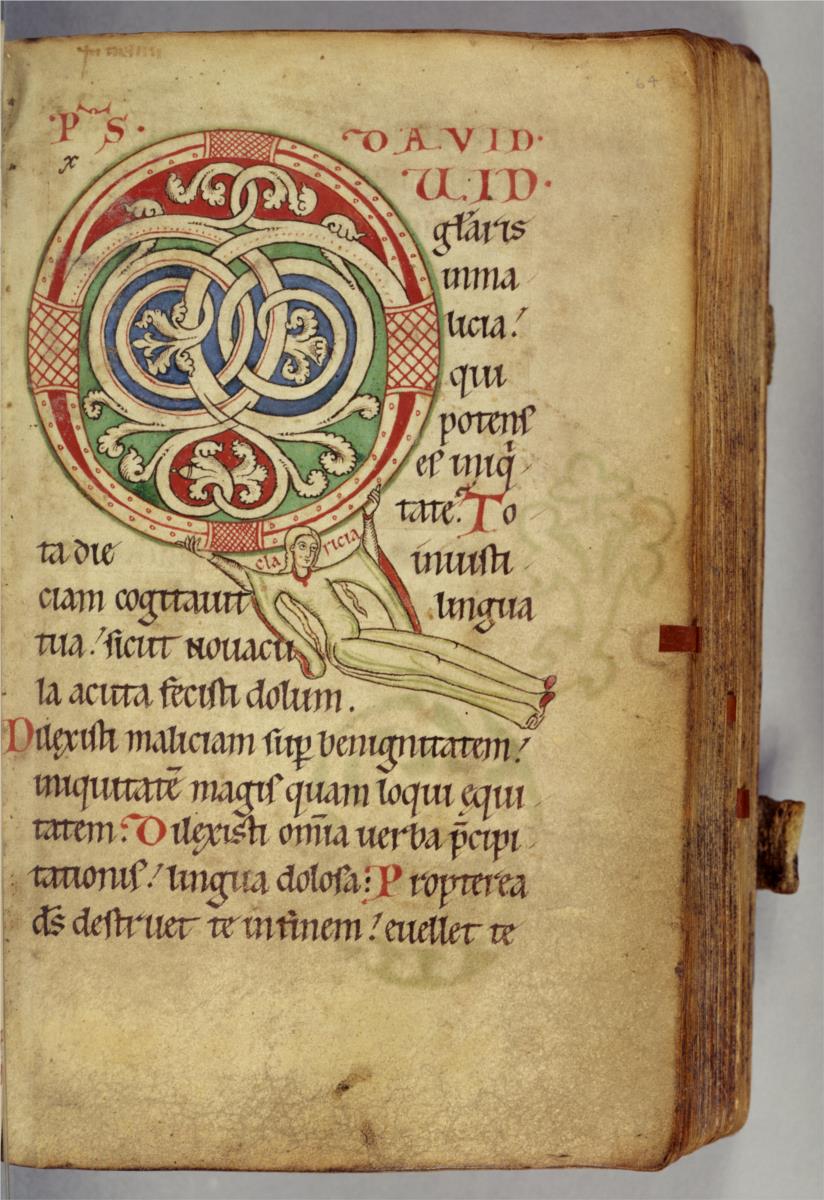 64
PS. DAVID.
x
UID.
gl̄aris
inma
licia!
qui
potens
es iniq̇
tate. To
ta die iniusti
claricia
ciam cogitauit lingua
tua! sicut nouacu
la acuta fecisti dolum.
Dilexisti maliciam sup̱ benignitatem!
iniquitatē magis quam loqui equi
tatem: Dilexisti om̄ia uerba p̄cipi
tationis! lingua dolosa: Propterea
d̄s destruet te in finem! euellet te